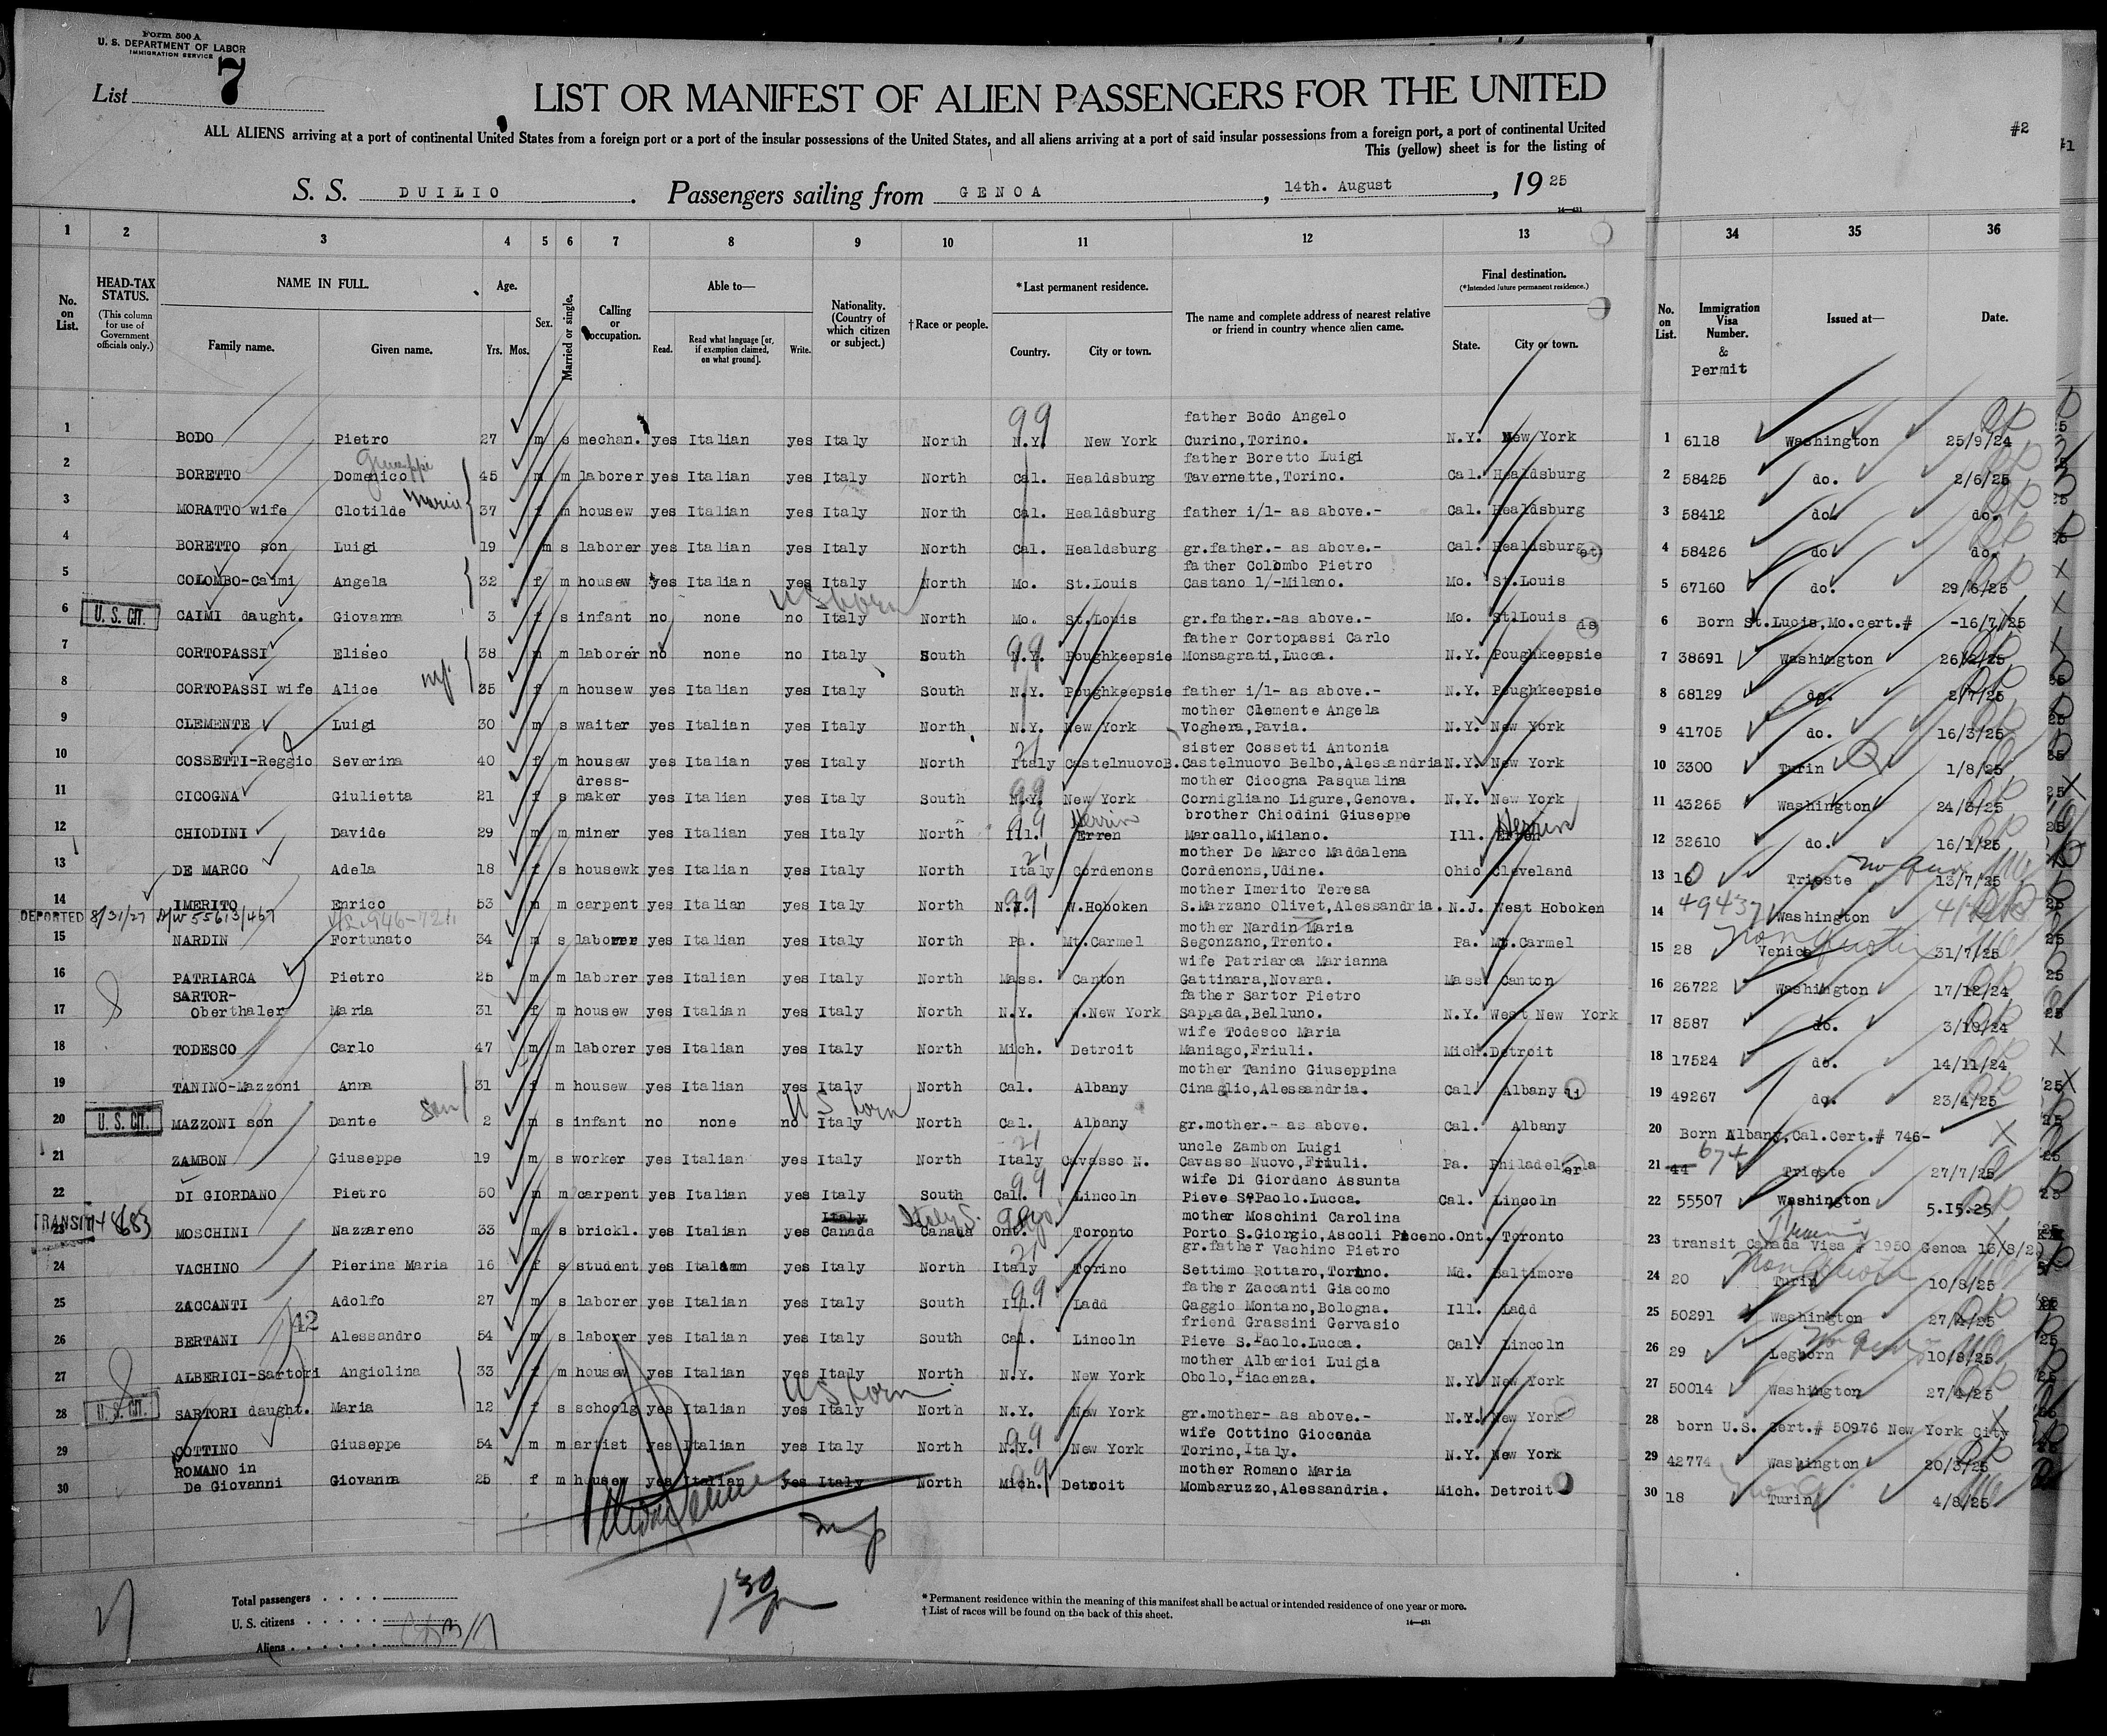 Form 500 A
U. S. DEPARTMENT OF LABOR
IMMIGRATION SERVICE
List 7
LIST OR MANIFEST OF ALIEN PASSENGERS FOR THE UNITED
#2
#1
ALL ALIENS arriving at a port of continental United States from a foreign port or a port of the insular possessions of the United States, and all aliens arriving at a port of said insular possessions from a foreign port, a port of continental United
This (yellow) sheet is for the listing of
S. S. DUILIO. Passengers sailing from GENOA, 14th. August, 1925
14—431
1 2 3 4 5 6 7 8 9 10 11 12 13 34 35 36
No. on List. HEAD-TAX STATUS. (This column for use of Government officials only.) NAME IN FULL. Family name. Given name. Age. Yrs. Mos. Sex. Married or single. Calling or occupation. Able to— Read. Read what language [or, if exemption claimed, on what ground]. Write. Nationality. (Country of which citizen or subject.) †Race or people. *Last permanent residence. Country. City or town. The name and complete address of nearest relative or friend in country whence alien came. Final destination. (*Intended future permanent residence.) State. City or town. No. on List. Immigration Visa Number. & Permit Issued at— Date.
99 father Bodo Angelo
1 BODO Pietro 27 m s mechan. yes Italian yes Italy North N.Y. New York Curino,Torino. N.Y. New York 1 6118 Washington 25/9/24
Giuseppi father Boretto Luigi
2 BORETTO Domenico 45 m m laborer yes Italian yes Italy North Cal. Healdsburg Tavernette,Torino. Cal. Healdsburg 2 58425 do. 2/6/25
3 MORATTO wife Clotilde Maria 37 f m housew yes Italian yes Italy North Cal. Healdsburg father i/l- as above.- Cal. Healdsburg 3 58412 do. do.
4 BORETTO son Luigi 19 m s laborer yes Italian yes Italy North Cal. Healdsburg gr.father.- as above.- Cal. Healdsburg 4 58426 do do.
father Colombo Pietro
5 COLOMBO-Caimi Angela 32 f m housew yes Italian yes Italy North Mo. St.Louis Castano 1/-Milano. Mo. St.Louis 5 67160 do. 29/6/25
US born
6 U. S. CIT. CAIMI daught. Giovanna 3 f s infant no none no Italy North Mo. St.Louis gr.father.-as above.- Mo. St.Louis is 6 Born St.Lucis,Mo.cert.# -16/7/25
99 father Cortopassi Carlo
7 CORTOPASSI Eliseo 38 m m laborer no none no Italy South N.Y. Poughkeepsie Monsagrati,Lucca. N.Y. Poughkeepsie 7 38691 Washington 26/2/25
8 CORTOPASSI wife Alice 35 f m housew yes Italian yes Italy South N.Y. Poughkeepsie father i/l- as above.- N.Y. Poughkeepsie 8 68129 do. 2/7/25
mother Clemente Angela
9 CLEMENTE Luigi 30 m s waiter yes Italian yes Italy North N.Y. New York Voghera,Pavia. N.Y. New York 9 41705 do. 16/3/25
21 sister Cossetti Antonia
10 COSSETTI-Reggio Severina 40 f m housew yes Italian yes Italy North Italy CastelnuovoB. Castelnuovo Belbo,Alessandria N.Y. New York 10 3300 Turin 1/8/25
dress- 99 mother Cicogna Pasqualina
11 CICOGNA Giulietta 21 f s maker yes Italian yes Italy South N.Y. New York Cornigliano Ligure,Genova. N.Y. New York 11 43265 Washington 24/3/25
99 Herrin brother Chiodini Giuseppe Herrin
12 CHIODINI Davide 29 m m miner yes Italian yes Italy North Ill. Erren Marcallo,Milano. Ill. Erren 12 32610 do. 16/1/25
21 mother De Marco Maddalena
13 DE MARCO Adela 18 f s housewk yes Italian yes Italy North Italy Cordenons Cordenons,Udine. Ohio Cleveland 13 10 Trieste 13/7/25
99 mother Imerito Teresa
14 IMERITO Enrico 53 m m carpent yes Italian yes Italy North N.J. W.Hoboken S.Marzano Olivet,Alessandria. N.J. West Hoboken 14 49437 Washington
DEPORTED 8/31/27 A/W 55613/467
mother Nardin Maria
15 NARDIN Fortunato 34 m s laborer yes Italian yes Italy North Pa. Mt.Carmel Segonzano,Trento. Pa. Mt.Carmel 15 28 Venice 31/7/25
wife Patriarca Marianna
16 PATRIARCA Pietro 25 m m laborer yes Italian yes Italy North Mass. Canton Gattinara,Novara. Mass Canton 16 26722 Washington 17/12/24
SARTOR- father Sartor Pietro
17 Oberthaler Maria 31 f m housew yes Italian yes Italy North N.Y. W.New York Sappada,Belluno. N.Y. West New York 17 8587 do. 3/10/24
wife Todesco Maria
18 TODESCO Carlo 47 m m laborer yes Italian yes Italy North Mich. Detroit Maniago,Friuli. Mich. Detroit 18 17524 do. 14/11/24
mother Tanino Giuseppina
19 TANINO-Mazzoni Anna 31 f m housew yes Italian yes Italy North Cal. Albany Cinaglio,Alessandria. Cal. Albany li 19 49267 do. 23/4/25
US born
20 U. S. CIT. MAZZONI son Dante son 2 m s infant no none no Italy North Cal. Albany gr.mother.- as above. Cal. Albany 20 Born Albany,Cal.Cert.# 746-
21 uncle Zambon Luigi
21 ZAMBON Giuseppe 19 m s worker yes Italian yes Italy North Italy Cavasso N. Cavasso Nuovo,Friuli. Pa. Philadel 21 44 674 Trieste 27/7/25
99 wife Di Giordano Assunta
22 DI GIORDANO Pietro 50 m m carpent yes Italian yes Italy South Cal. Lincoln Pieve S.Paolo.Lucca. Cal. Lincoln 22 55507 Washington 5.I5.25
Italy Italy S. mother Moschini Carolina
TRANSIT 48683
23 MOSCHINI Nazzareno 33 m s brickl. yes Italian yes Canada Canada Ont. Toronto Porto S.Giorgio,Ascoli Piceno. Ont. Toronto 23 transit Canada Visa # 1950 Genoa 13/8/2
21 gr.father Vachino Pietro
24 VACHINO Pierina Maria 16 f s student yes Italian yes Italy North Italy Torino Settimo Rottaro,Torino. Md. Baltimore 24 20 Turin 10/8/25
99 father Zaccanti Giacomo
25 ZACCANTI Adolfo 27 m s laborer yes Italian yes Italy South Ill. Ladd Gaggio Montano,Bologna. Ill. Ladd 25 50291 Washington 27/4/25
12 friend Grassini Gervasio
26 BERTANI Alessandro 54 m s laborer yes Italian yes Italy South Cal. Lincoln Pieve S.Paolo.Lucca. Cal. Lincoln 26 29 Leghorn 10/8/25
mother Alberici Luigia
27 ALBERICI-Sartori Angiolina 33 f m housew yes Italian yes Italy North N.Y. New York Obolo,Piacenza. N.Y. New York 27 50014 Washington 27/4/25
US born
28 U. S. CIT. SARTORI daught. Maria 12 f s schoolg yes Italian yes Italy North N.Y. New York gr.mother- as above.- N.Y. New York 28 born U.S. Cert.# 50976 New York City
99 wife Cottino Gioconda
29 COTTINO Giuseppe 54 m m artist yes Italian yes Italy North N.Y. New York Torino,Italy. N.Y. New York 29 42774 Washington 20/3/25
ROMANO in 99 mother Romano Maria
30 De Giovanni Giovanna 25 f m housew yes Italian yes Italy North Mich. Detroit Mombaruzzo,Alessandria. Mich. Detroit 30 18 Turin 4/8/25
Total passengers
U. S. citizens
Aliens
130
* Permanent residence within the meaning of this manifest shall be actual or intended residence of one year or more.
† List of races will be found on the back of this sheet.
14—431